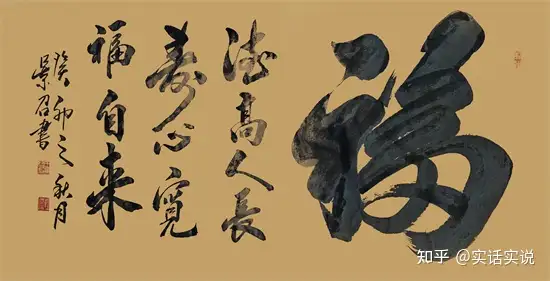 福
德高人長
壽心寬
福自来
癸卯之秋月
景召書
知乎 @实话实说